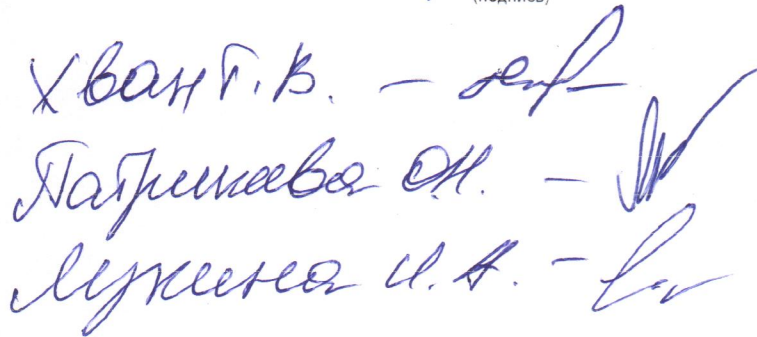 (подпись)
Хван Т.В. –
Патрикеева О.Н. –
Лукина И.А. –